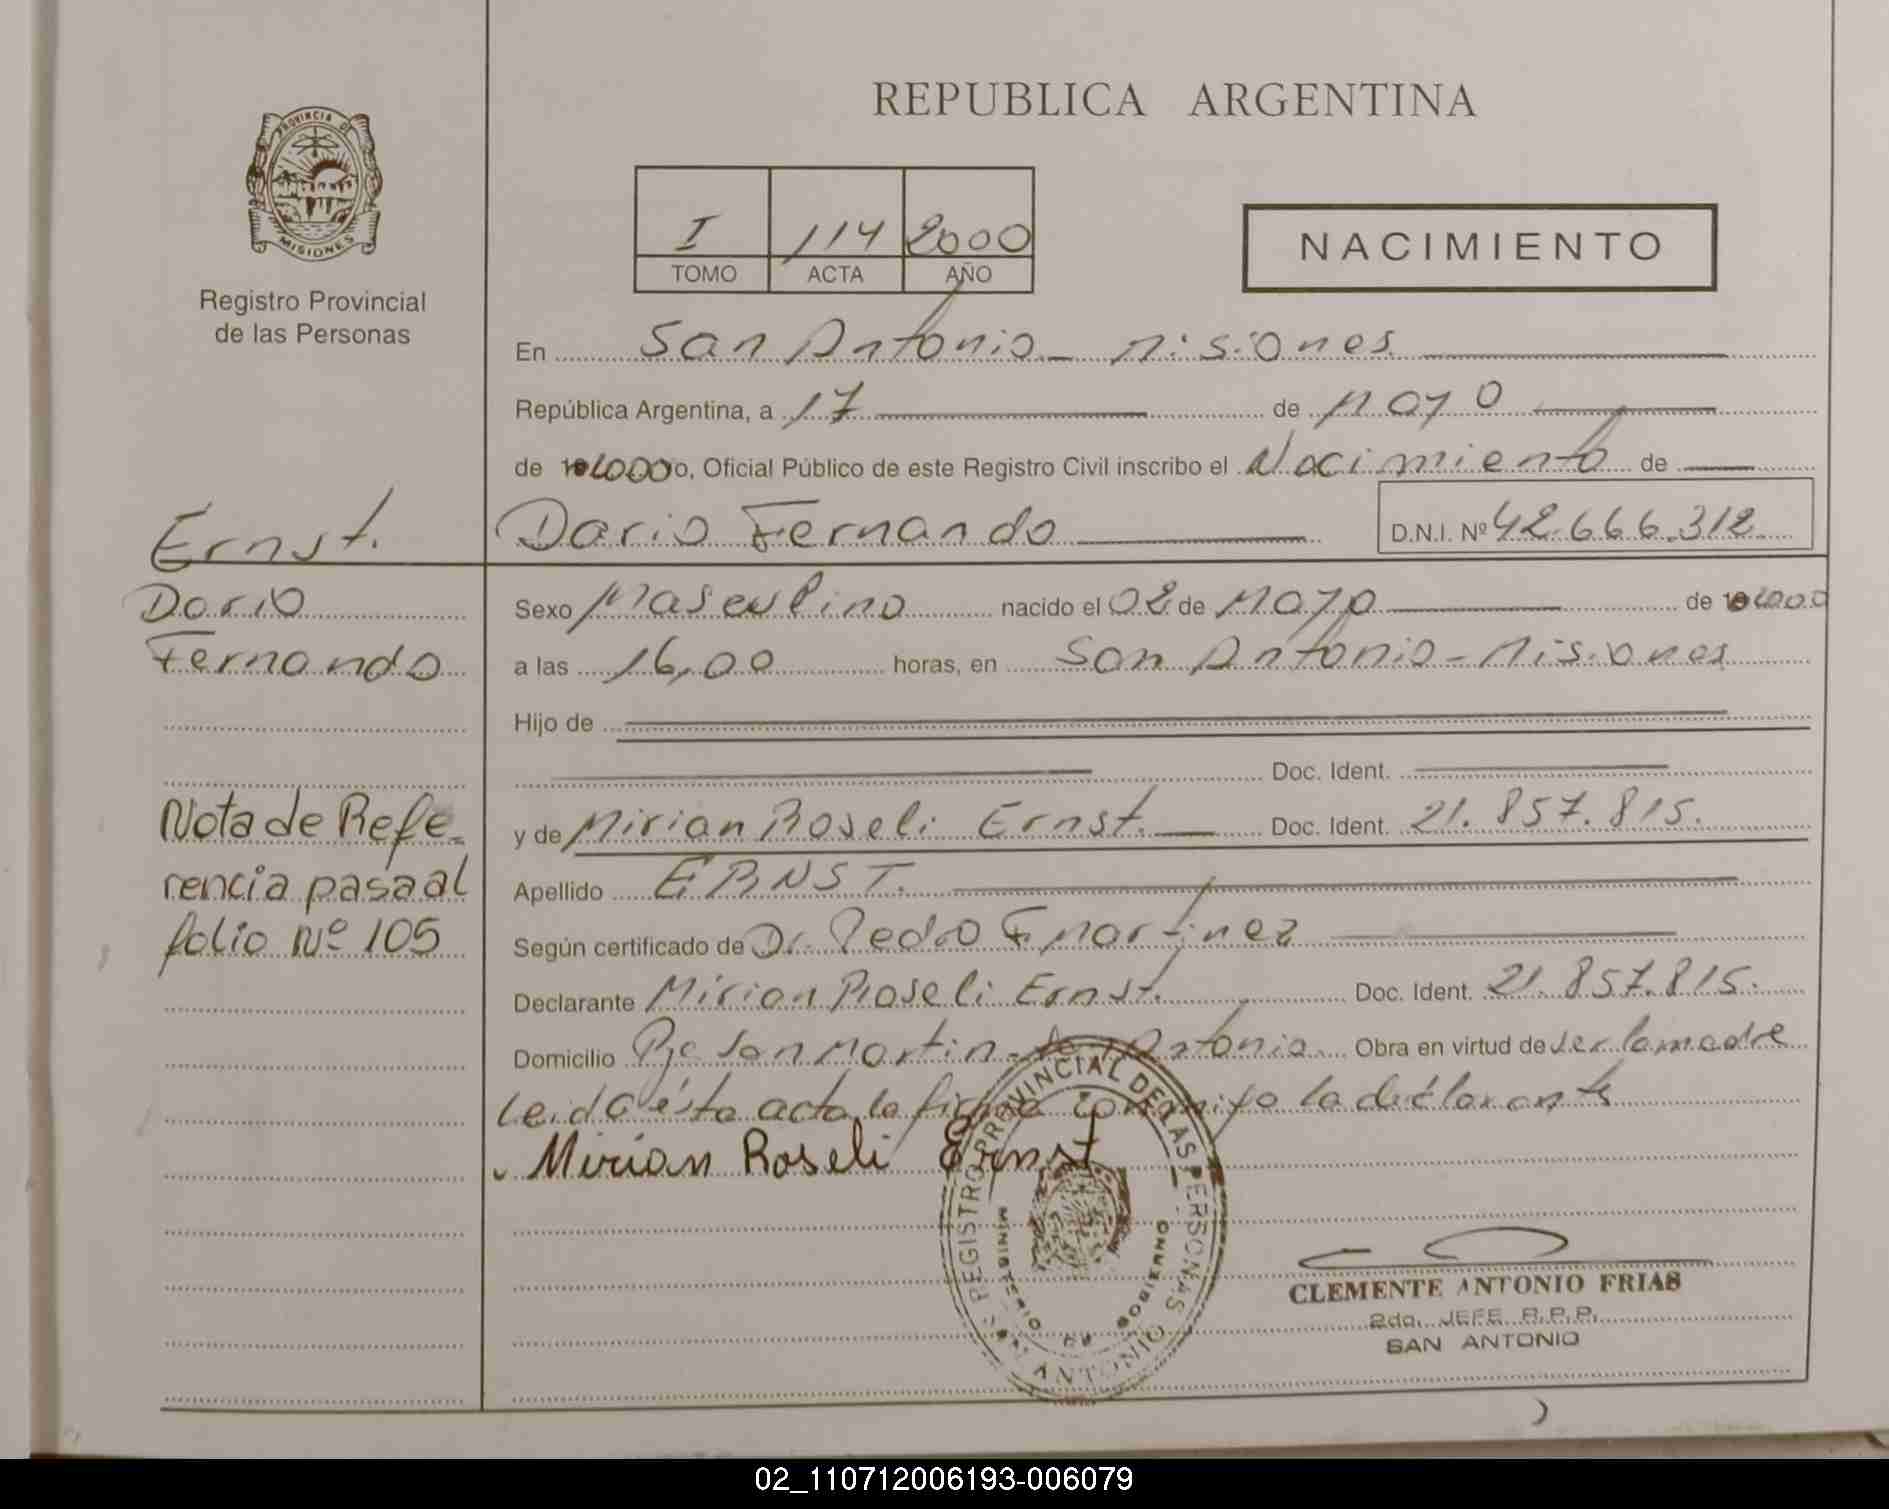 REPUBLICA ARGENTINA
PROVINCIA DE
MISIONES
Registro Provincial
de las Personas
I 114 2000
TOMO ACTA AÑO
NACIMIENTO
En San Antonio - Misiones
República Argentina, a 17 de Mayo
de 2000 o, Oficial Público de este Registro Civil inscribo el Nacimiento de
Ernst. Dario Fernando D.N.I. Nº 42.666.312
Dario Sexo Masculino nacido el 02 de Mayo de 2000
Fernando a las 16,00 horas, en San Antonio - Misiones
Hijo de
Doc. Ident.
Nota de Refe- y de Mirian Roseli Ernst. Doc. Ident. 21.857.815.
rencia pasa al Apellido ERNST.
folio Nº 105 Según certificado de Dr. Pedro F Martinez
Declarante Mirian Roseli Ernst. Doc. Ident. 21.857.815.
Domicilio Pje San Martin - San Antonio Obra en virtud de ser la madre
Leida ésta acta la firma conmigo la declarante
Mirian Roseli Ernst
REGISTRO PROVINCIAL DE LAS PERSONAS
MINISTERIO DE GOBIERNO
ANTONIO
CLEMENTE ANTONIO FRIAS
2do. JEFE R.P.P.
SAN ANTONIO
02_110712006193-006079